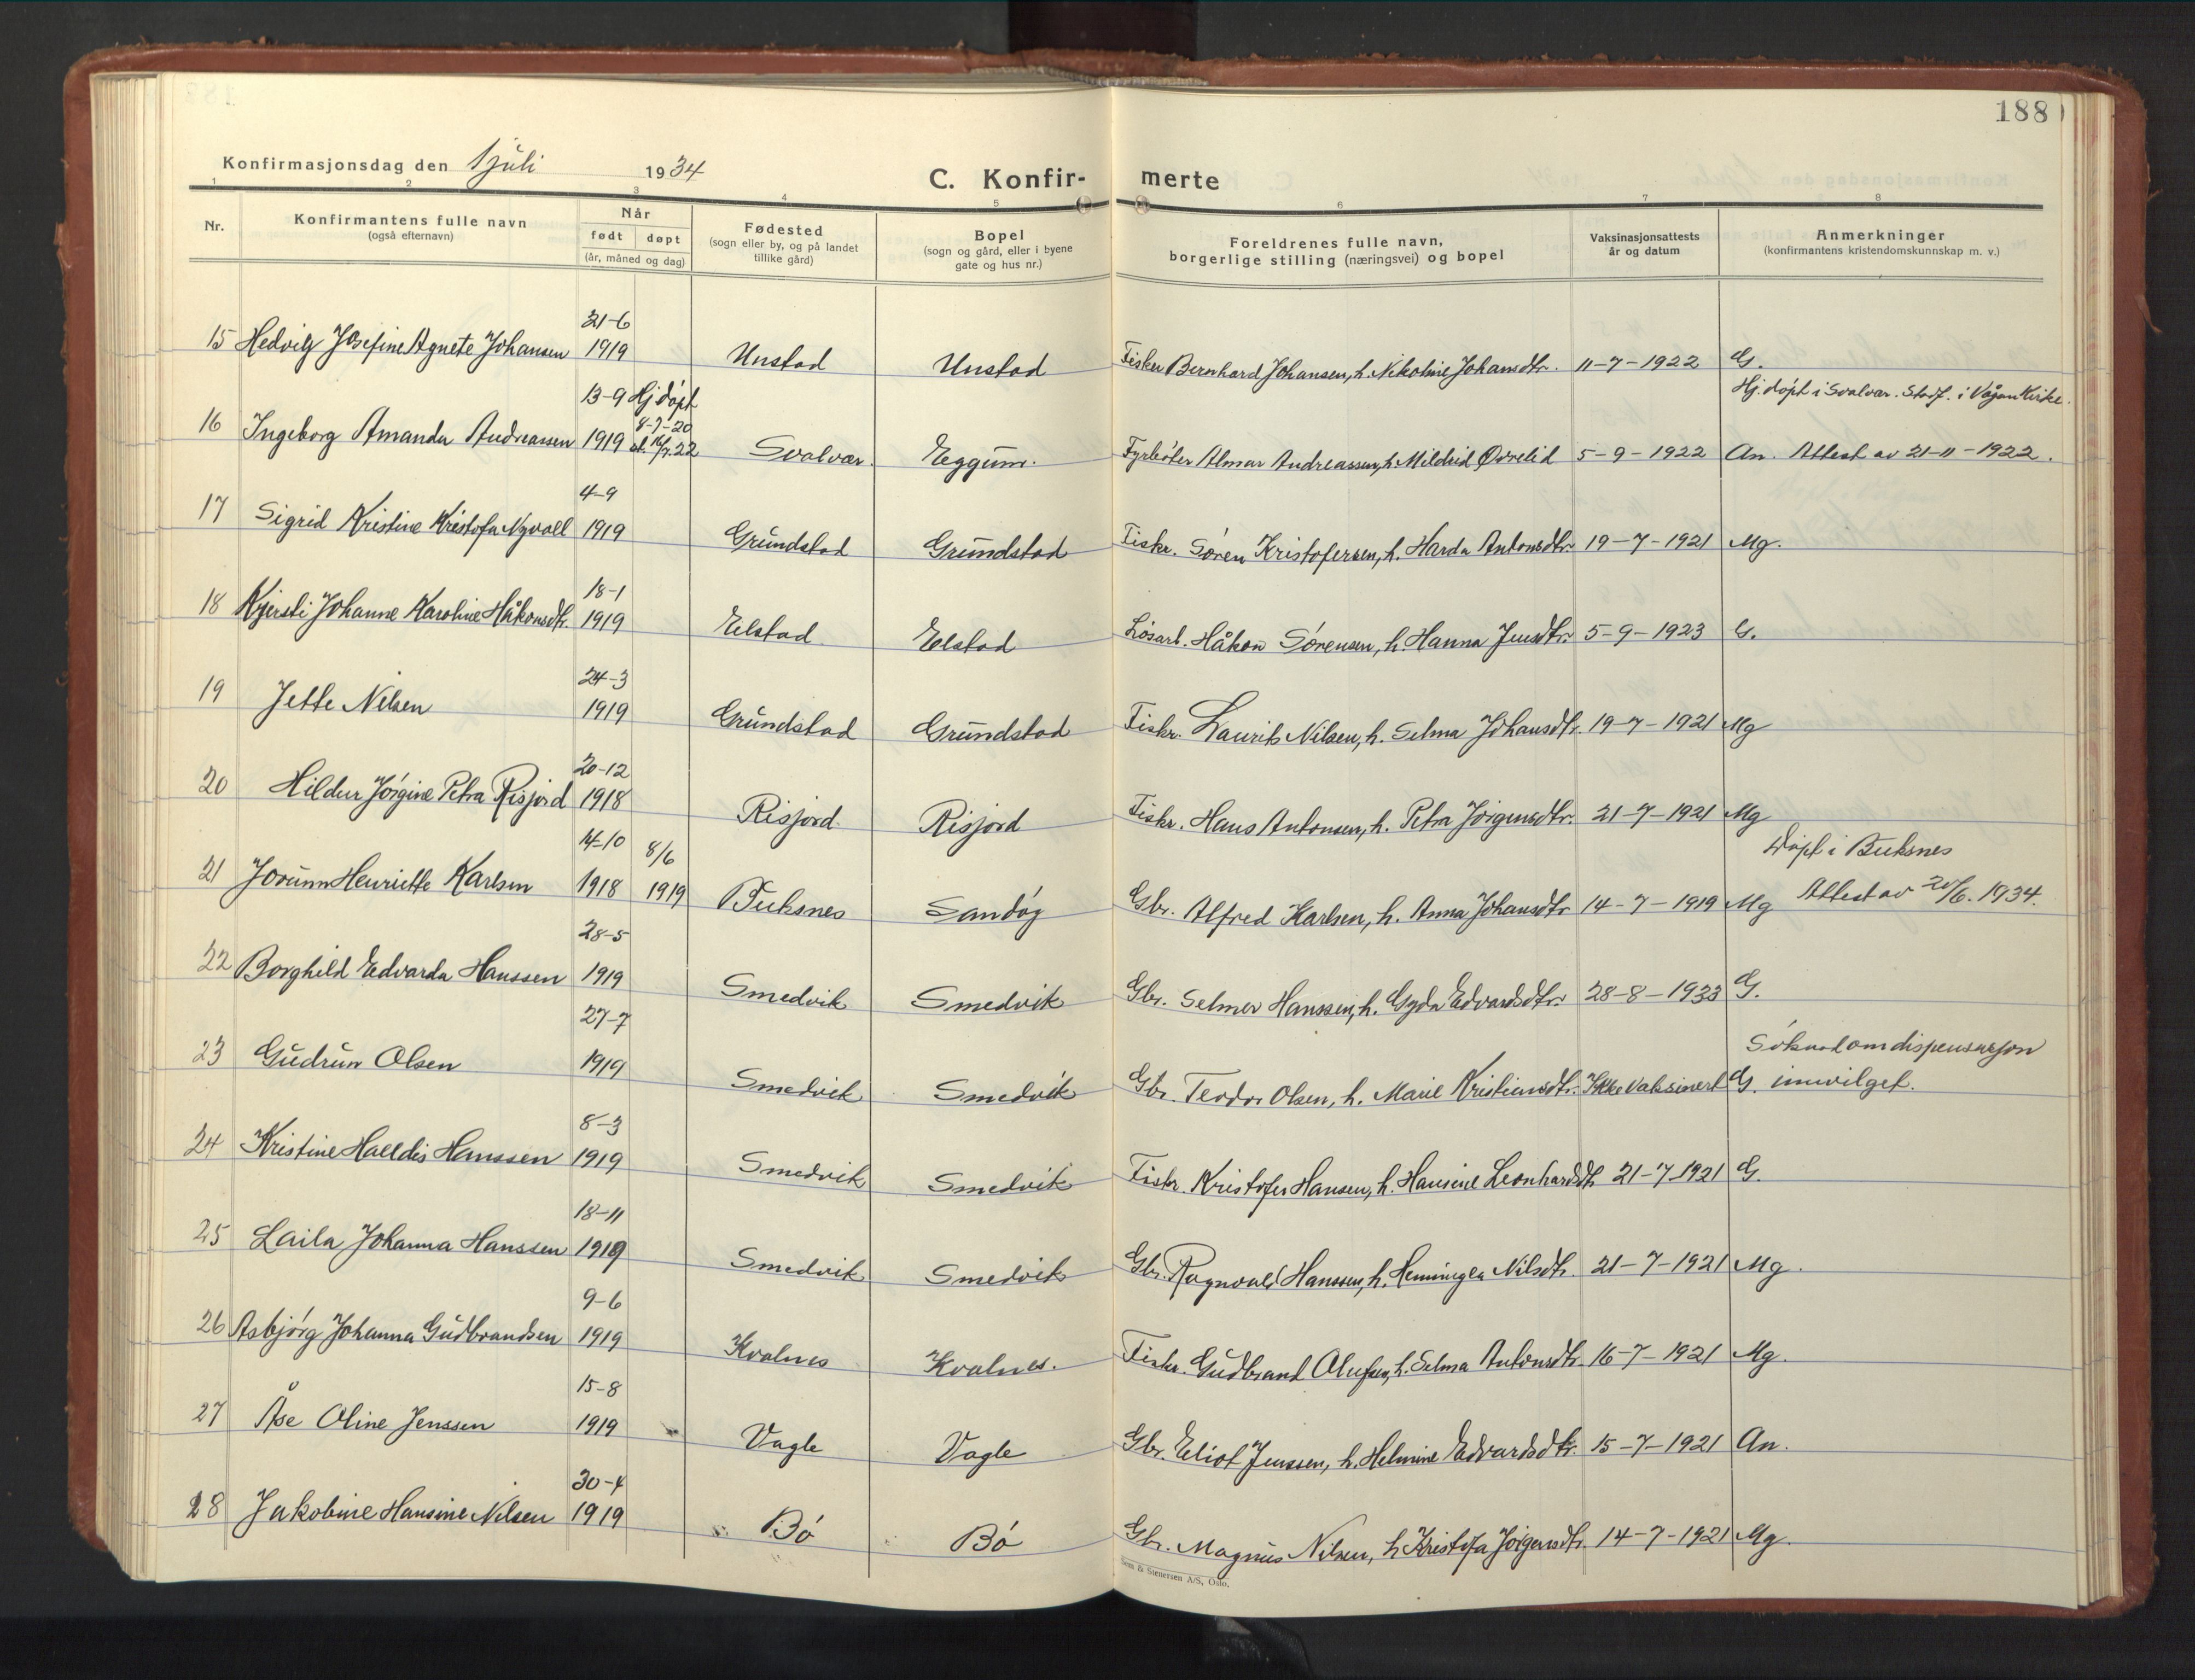 188
Konfirmasjonsdag den 1 juli 1934
C. Konfir- merte
1 2 3 4 5 6 7 8
Nr. Konfirmantens fulle navn (også efternavn) Når født døpt (år, måned og dag) Fødested (sogn eller by, og på landet tillike gård) Bopel (sogn og gård, eller i byene gate og hus nr.) Foreldrenes fulle navn, borgerlige stilling (næringsvei) og bopel Vaksinasjonsattests år og datum Anmerkninger (konfirmantens kristendomskunnskap m. v.)
21-6
15 Hedvig Josefine Agnete Johansen 1919 Unstad Unstad Fisker Bernhard Johansen, h. Nikoline Johansdtr. 11-7-1922 G.
13-9 Hjdøpt Hj. døpt i Svolvær. Stadf. i Vågan Kirke.
8-7-20
16 Ingeborg Amanda Andreassen 1919 st. 16/7.22 Svolvær. Eggum. Fyrbøter Almar Andreassen, h. Mildrid Øvrelid 5-9-1922 An. Attest av 21-11-1922.
4-9
17 Sigrid Kristine Kristofa Nyvoll 1919 Grundstad Grundstad Fiskr. Søren Kristofersen, h. Harda Antonsdtr. 19-7-1921 Mg.
18-1
18 Kjersti Johanne Karoline Håkonsdtr. 1919 Eelstad Eelstad Løsarb. Håkon Sørensen, h. Hanna Jensdtr. 5-9-1923 G.
24-3
19 Jette Nilsen 1919 Grundstad Grundstad Fiskr. Laurits Nilsen, h. Selma Johansdtr. 19-7-1921 Mg
20-12
20 Hildur Jørgine Petra Risjord 1918 Risjord Risjord Fiskr. Hans Antonsen, h. Petra Jørgensdtr. 21-7-1921 Mg
14-10 8/6 Døpt i Buksnes
21 Jorunn Henriette Karlsen 1918 1919 Buksnes Sandøy Gbr. Alfred Karlsen, h. Anna Johansdtr 14-7-1919 Mg Attest av 20/6. 1934.
28-5
22 Borghild Edvarda Hanssen 1919 Smedvik Smedvik Gbr. Selmer Hanssen, h. Gyda Edvardsdtr. 28-8-1933 G.
27-7 Søknad om dispensasjon
23 Gudrun Olsen 1919 Smedvik Smedvik Gbr. Teodor Olsen, h. Marie Kristiansdtr. Ikke vaksinert G. innvilget.
8-3
24 Kristine Halldis Hanssen 1919 Smedvik Smedvik Fiskr. Kristofer Hansen, h. Hansine Leonhardsdtr. 21-7-1921 G.
18-11
25 Laila Johanna Hanssen 1919 Smedvik Smedvik Gbr. Ragnvald Hanssen, h. Hemingea Nilsdtr. 21-7-1921 Mg.
9-6
26 Asbjørg Johanna Gudbrandsen 1919 Kvalnes Kvalnes. Fiskr. Gudbrand Olufsen, h. Selma Antonsdtr. 16-7-1921 Mg.
15-8
27 Åse Oline Jenssen 1919 Vagle Vagle Gbr. Eliot Jenssen, h. Helmine Edvardsdtr. 15-7-1921 An.
30-4
28 Jakobine Hansine Nilsen 1919 Bø Bø Gbr. Magnus Nilsen, h. Kristofa Jørgensdtr. 14-7-1921 Mg.
Sem & Stenersen A/S, Oslo.